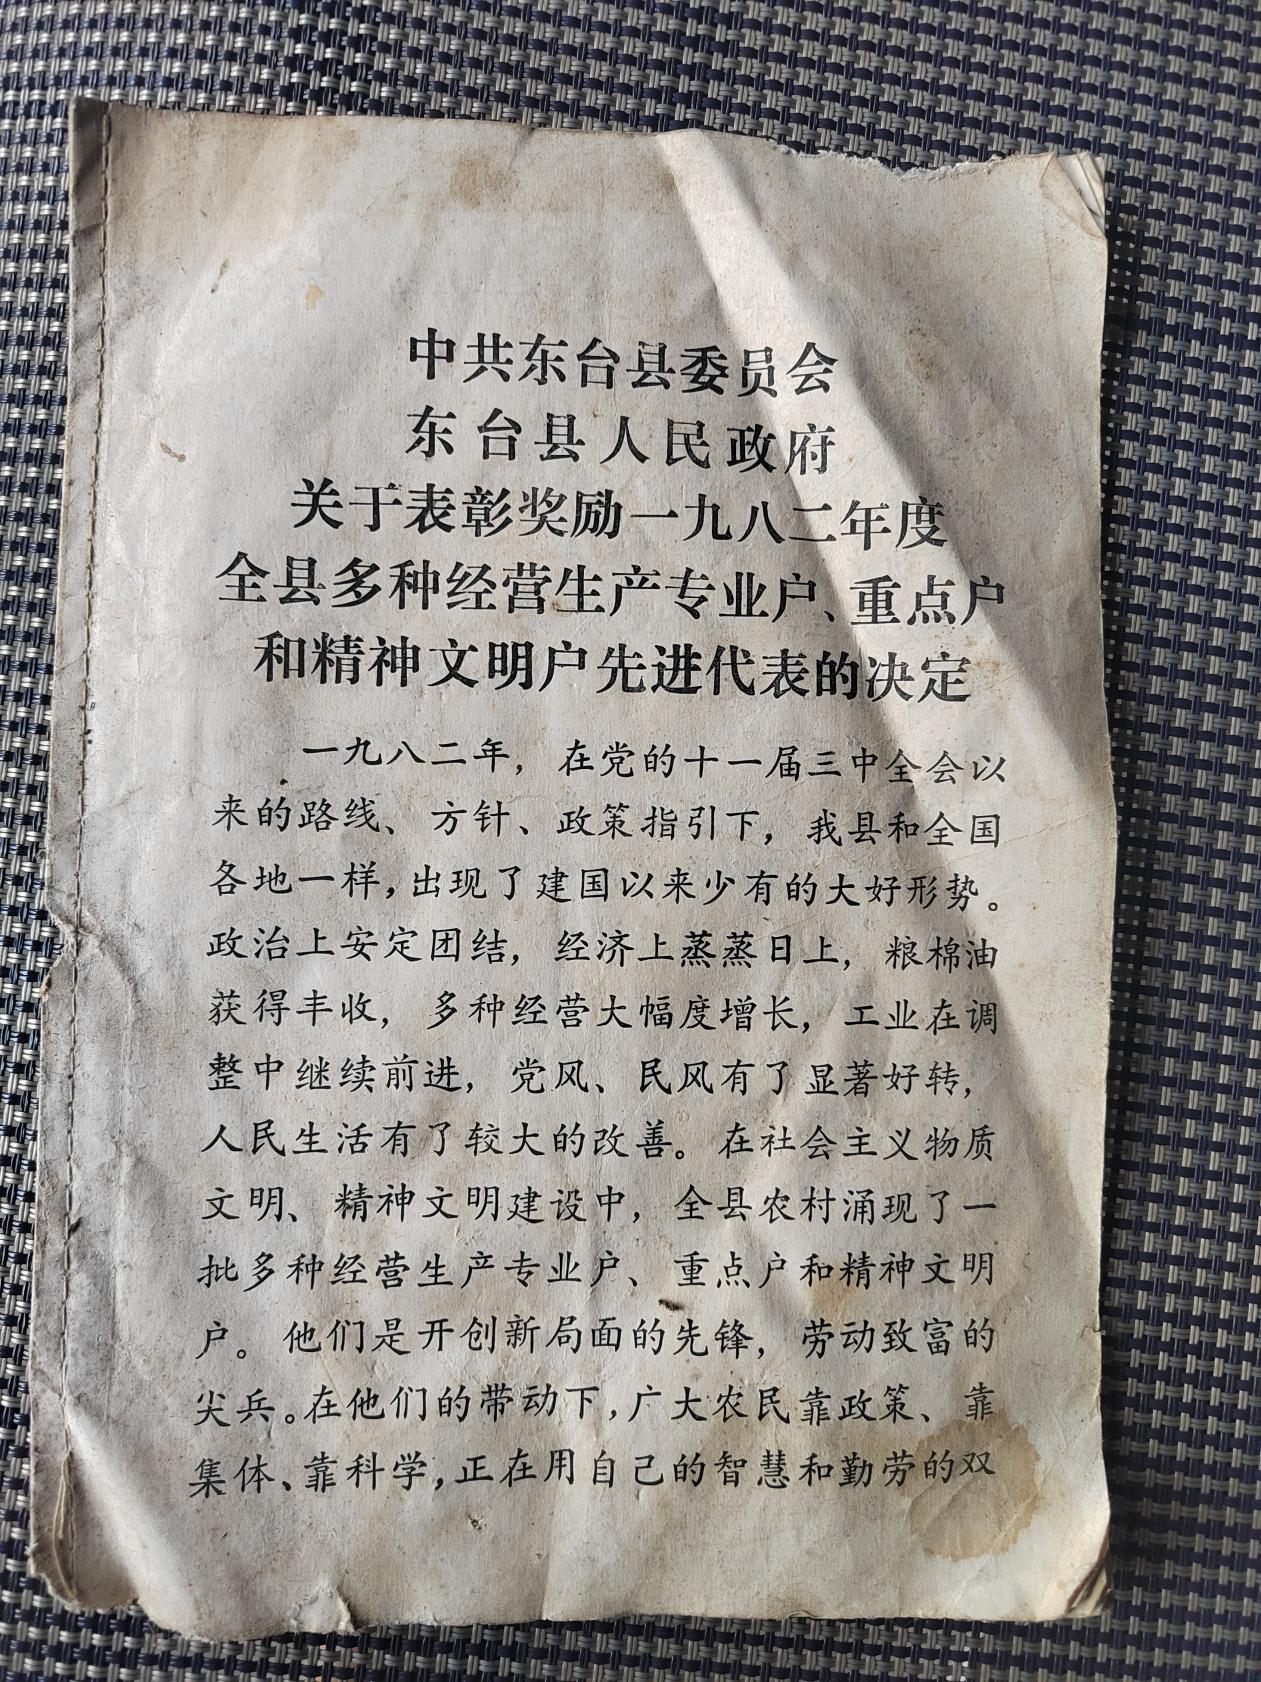 中共东台县委员会
东台县人民政府
关于表彰奖励一九八二年度
全县多种经营生产专业户、重点户
和精神文明户先进代表的决定
一九八二年，在党的十一届三中全会以
来的路线、方针、政策指引下，我县和全国
各地一样，出现了建国以来少有的大好形势。
政治上安定团结，经济上蒸蒸日上，粮棉油
获得丰收，多种经营大幅度增长，工业在调
整中继续前进，党风、民风有了显著好转，
人民生活有了较大的改善。在社会主义物质
文明、精神文明建设中，全县农村涌现了一
批多种经营生产专业户、重点户和精神文明
户。他们是开创新局面的先锋，劳动致富的
尖兵。在他们的带动下，广大农民靠政策、靠
集体、靠科学，正在用自己的智慧和勤劳的双